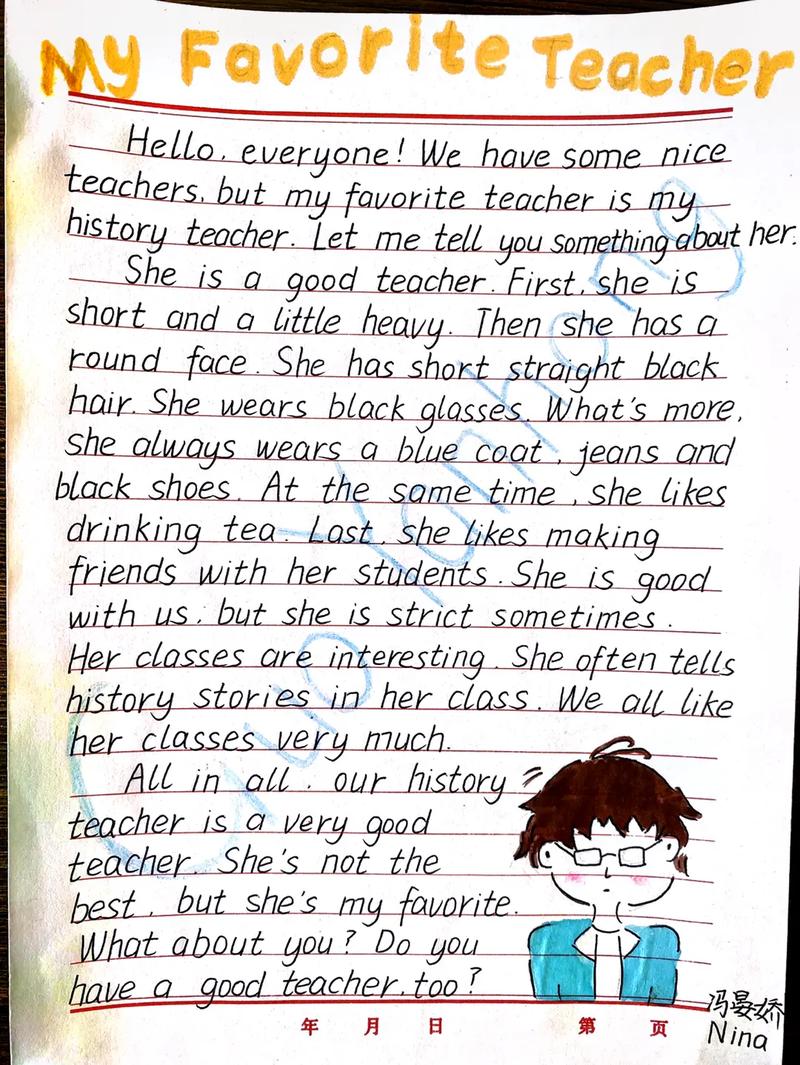 My Favorite Teacher
Hello, everyone! We have some nice
teachers, but my favorite teacher is my
history teacher. Let me tell you something about her.
She is a good teacher. First, she is
short and a little heavy. Then she has a
round face. She has short straight black
hair. She wears black glasses. What's more,
she always wears a blue coat, jeans and
black shoes. At the same time, she likes
drinking tea. Last, she likes making
friends with her students. She is good
with us, but she is strict sometimes.
Her classes are interesting. She often tells
history stories in her class. We all like
her classes very much.
All in all, our history
teacher is a very good
teacher. She's not the
best, but she's my favorite.
What about you? Do you
have a good teacher, too?
Guo Yanhong
年 月 日 第 页
冯晏娇
Nina